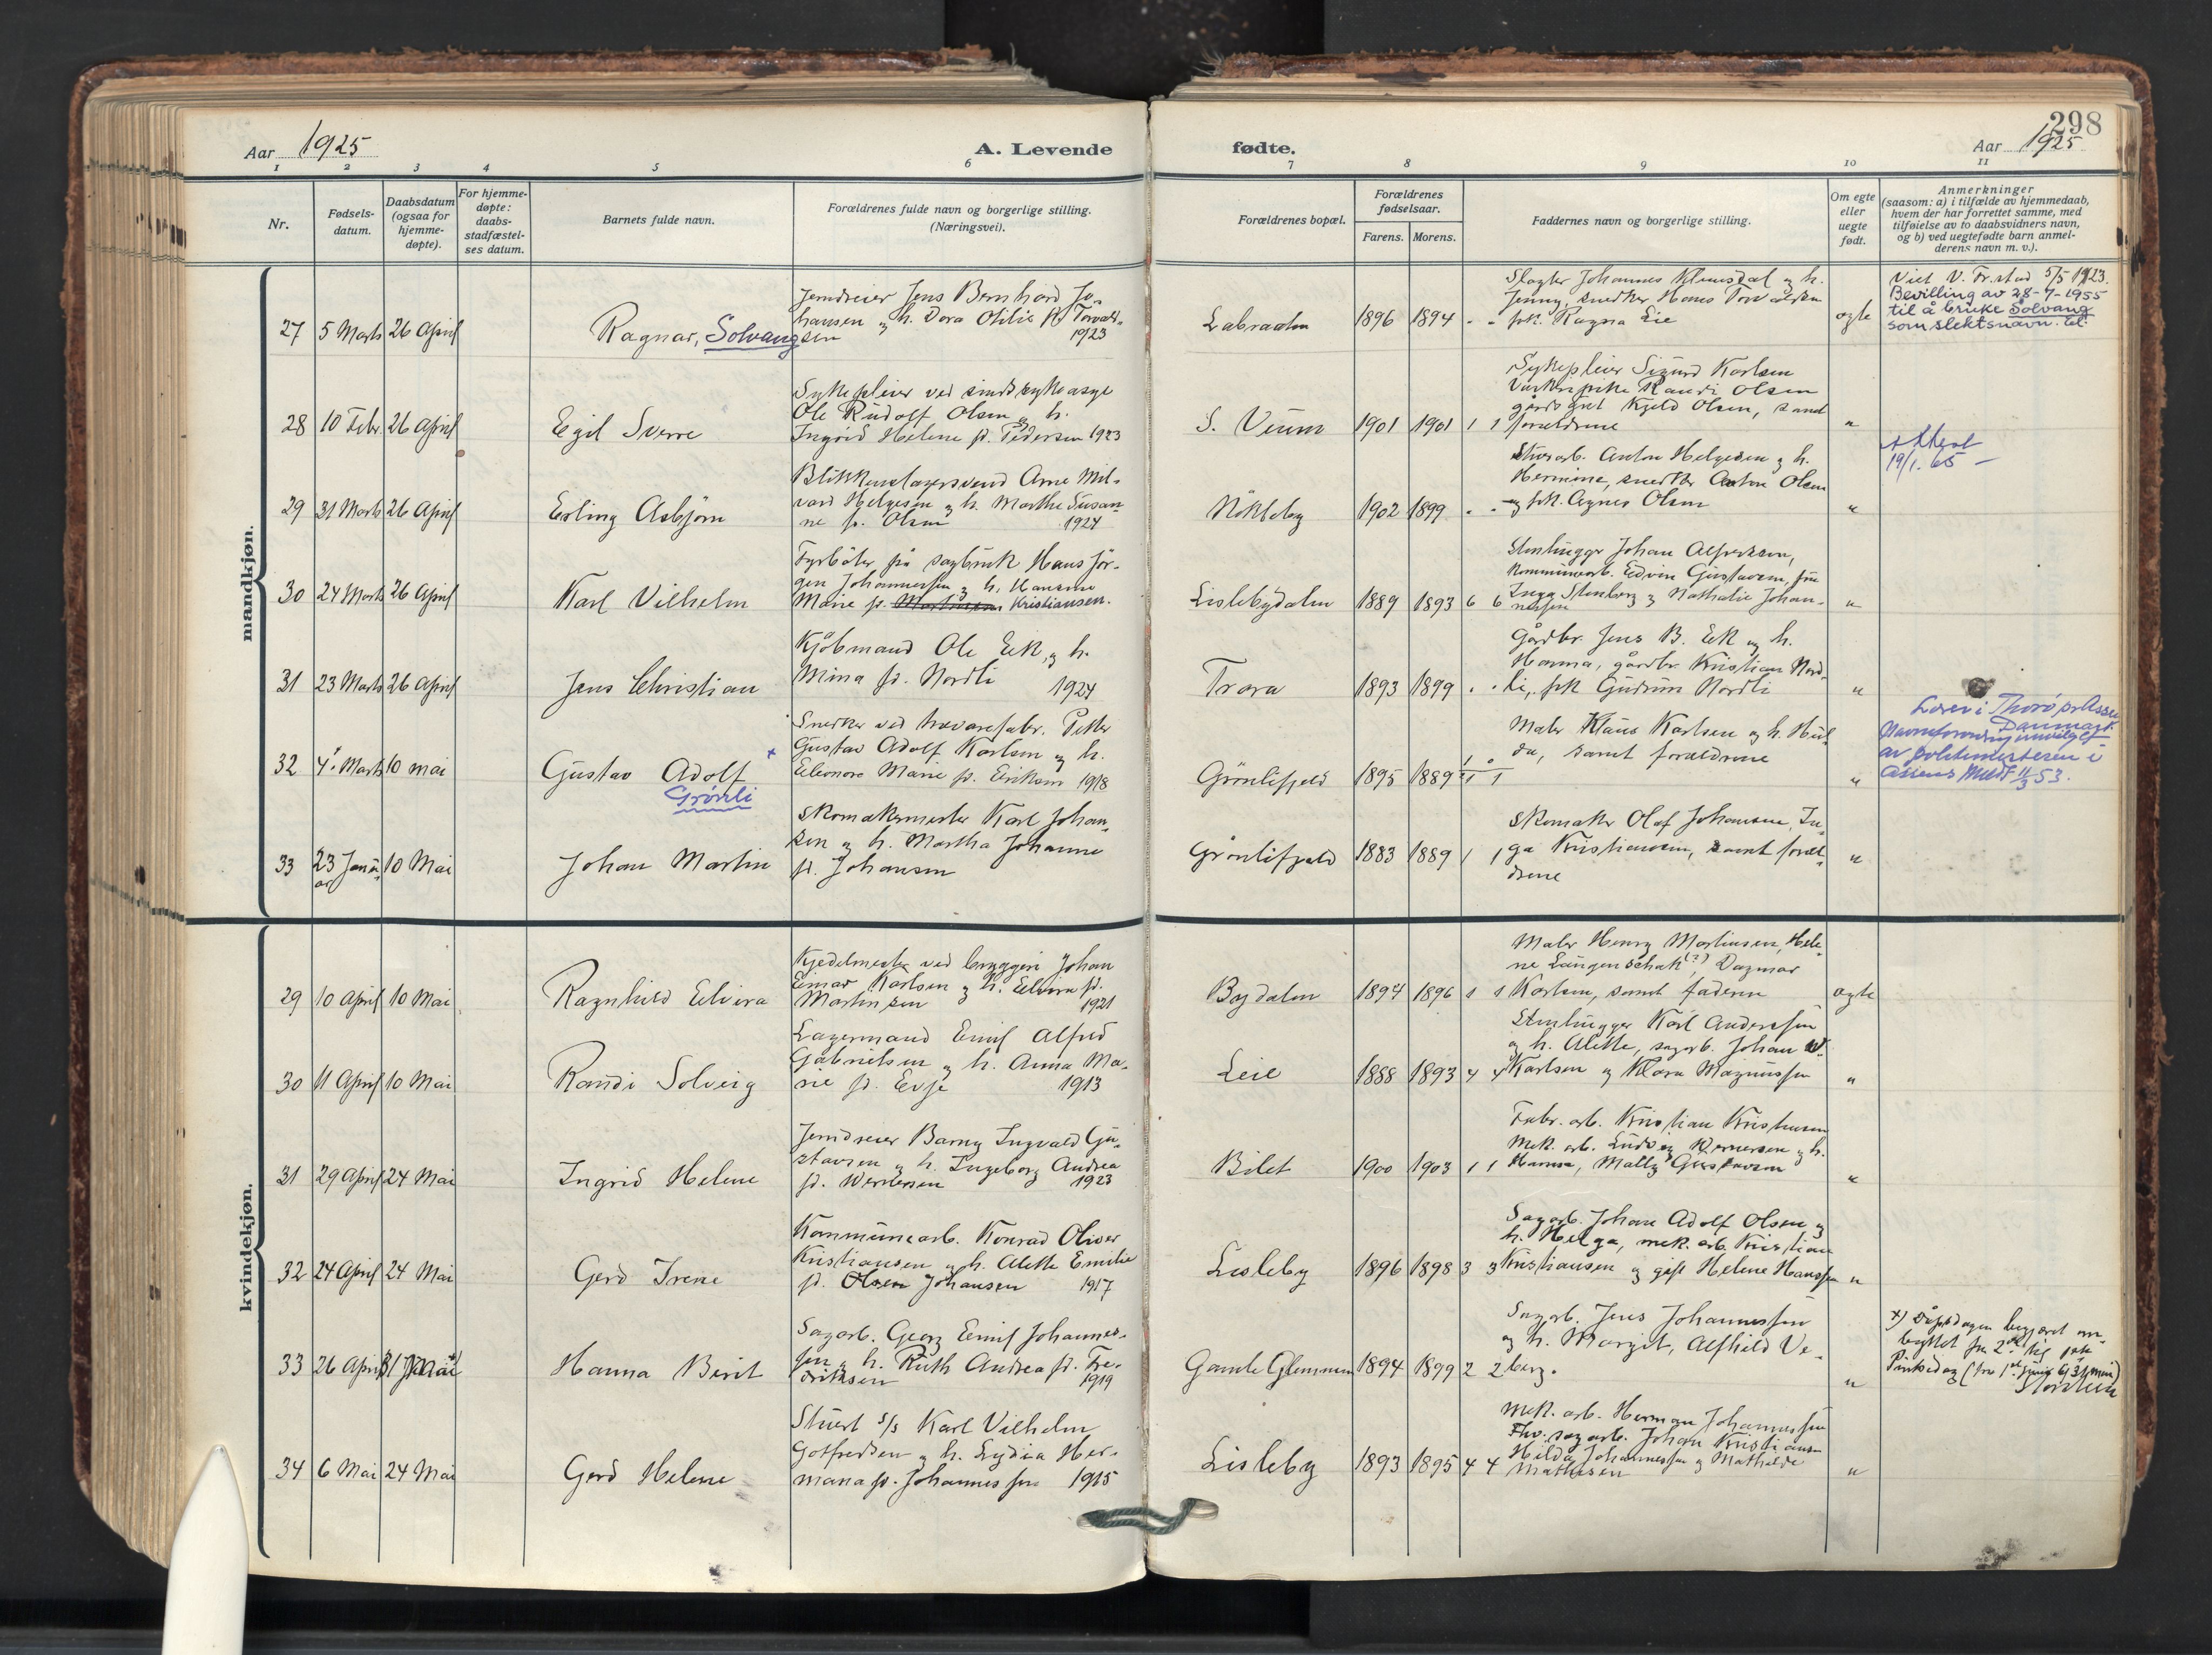 Aar 1925
A. Levende
fødte.
298
Aar 1925
1 2 3 4 5 6 7 8 9 10 11
Nr.
Fødsels-
datum.
Daabsdatum
(ogsaa for
hjemme-
døpte).
For hjemme-
døpte:
daabs-
stadfæstel-
ses datum.
Barnets fulde navn.
Forældrenes fulde navn og borgerlige stilling.
(Næringsvei).
Forældrenes bopæl.
Forældrenes
fødselsaar.
Farens. Morens.
Faddernes navn og borgerlige stilling.
Om egte
eller
uegte
født.
Anmerkninger
(saasom: a) i tilfælde av hjemmedaab,
hvem der har forrettet samme, med
tilføielse av to daabsvidners navn,
og b) ved uegtefødte barn anmel-
derens navn m. v.).
mandkjøn.
27 5 Marts 26 April
Ragnar, Solvang
Jerndreier Jens Bernhard Jo-
hansen og h. Dora Otilie f. Torvald-
sen 1923
Labraaten 1896 1894
Slagter Johannes Klemsdal og h.
Jenny, snedker Hans Torvaldsen
frk. Ragna Lie
egte
Viet V. Fr.stad 5/5 1923.
Bevilling av 28-7-1955
til å bruke Solvang
som slektsnavn.
28 10 Febr. 26 April
Egil Sverre
Sykepleier ved sindssykeasyl
Ole Rudolf Olsen og h.
Ingrid Helene f. Pedersen 1923
S. Veum 1901 1901 1 1
Sykepleier Sigurd Karlsen
Randi Olsen
Kjeld Olsen, samt
forældrene
"
Attest
19/1.65 –
29 31 Marts 26 April
Erling Asbjørn
Blikkenslagersvend Arne Mil-
vard Helgesen og h. Marthe Susan-
ne f. Olsen 1924
Nökleby 1902 1899
Anton Helgesen og h.
Hermine, snedker Anton Olsen
og frk. Agnes Olsen
"
30 24 Marts 26 April
Karl Vilhelm
Fyrböter på sagbruk Hans Jör-
gen Johannessen og h. Hansine
Marie f. Kristiansen.
Lislebydalen 1889 1893 6 6
Stenhugger Johan Alfredsen,
kommunearb. Edvin Gustavsen, fru
Inga Stenberg og Nathalie Johan-
nessen
"
31 23 Marts 26 April
Jens Christian
Kjöbmand Ole Eek, og h.
Mina f. Nordli 1924
Trara 1893 1899
Gårdbr. Jens B. Eek og h.
Hanna, gårdbr. Kristian Nord-
li, frk Gudrun Nordli
"
32 4 Marts 10 mai
Gustav Adolf +
Grønli
Snedker ved trævarefabr. Petter
Gustav Adolf Karlsen og h.
Eleonora Marie f. Eriksen 1918
Grönlifjeld 1895 1889 1 1
Maler Klaus Karlsen og h. Hul-
da, samt forældrene
"
Danmark
Navneforandring innvilget
av politimesteren i
Assens 11/3 53.
33 23 Janu-
ar 10 Mai
Johan Martin
Skomakermester Karl Johan-
sen og h. Martha Johanne
f. Johansen
Grönlifjeld 1883 1889 1 1
Skomaker Olaf Johansen, In-
ga Kristiansen, samt foræl-
drene
"
kvindekjøn.
29 10 April 10 Mai
Ragnhild Elvira
Kjedelmester ved bryggeri Johan
Einar Karlsen og h. Elvira f.
Martinsen 1921
Bydalen 1894 1896 1 1
Maler Henry Martinsen, Hele-
ne Langenschak (?), Dagmar
Karlsen, samt faderen
egte
30 11 April 10 Mai
Randi Solveig
Lagermand Emil Alfred
Gabrielsen og h. Anna Ma-
rie f. Evje 1913
Leie 1888 1893 4 4
Stenhugger Karl Anderssen
og h. Alette, sagarb. Johan W.
Karlsen og Klara Magnussen
"
31 29 April 24 Mai
Ingrid Helene
Jerndreier Barny Ingvald Gu-
stavsen og h. Ingeborg Andrea
f. Wernersen 1923
Bilet 1900 1903 1 1
Fabr. arb. Kristian Kristensen
Mek. arb. Ludvig Wernersen og h.
Hanna, Mally Gustavsen
"
32 24 April 24 Mai
Gerd Irene
Kommunearb. Konrad Oliver
Kristiansen og h. Alette Emilie
f. Olsen Johansen 1917
Lisleby 1896 1898 3 3
Sagarb. Johan Adolf Olsen og
h. Helga, mek. arb. Kristian
Kristiansen og gift Helene Hanssen
"
33 26 April 31 Mai +)
Hanna Berit
Sagarb. Georg Emil Johannes-
sen og h. Ruth Andrea f. Fre-
driksen 1919
Gamle Glemmen 1894 1899 2 2
Sagarb. Jens Johannessen
og h. Margit, Alfhild Ve-
berg.
"
+) Dåpsdagen begjæret om-
byttet fra 2den til 1ste
Pintsedag (fra 1st juni til 31 mai)
34 6 Mai 24 Mai
Gerd Helene
Stuert s/s Karl Vilhelm
Gotfredsen og h. Lydia Her-
mana f. Johannessen 1915
Lisleby 1893 1895 4 4
Mek. arb. Herman Johannessen
Fhv. sagarb. Johan Kristiansen
Hilda Johannessen og Mathilde
Mathisen
"